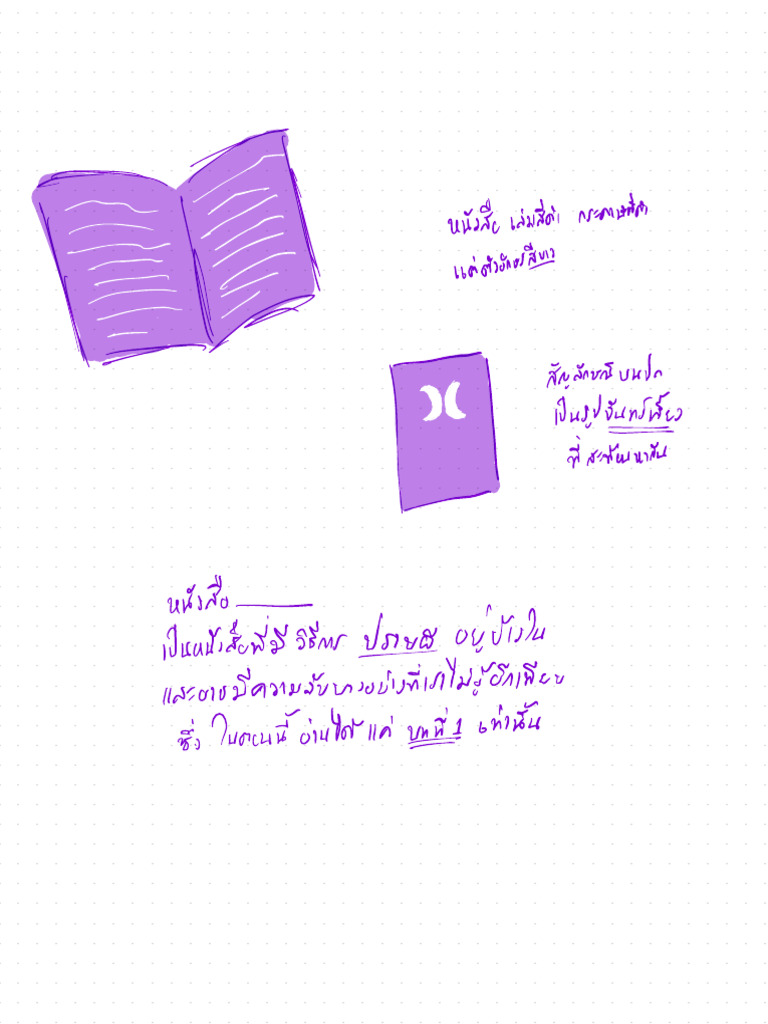 หนังสือ เล่มสีดำ กระดาษสีดำ
แต่ตัวอักษรสีขาว
สัญลักษณ์บนปก
เป็นรูปจันทร์เสี้ยว
ที่สะท้อนหากัน
หนังสือ
เป็นหนังสือที่มี วิธีการ อยู่ข้างใน
และอาจมีความลับบางอย่างที่เราไม่รู้อีกเพียบ
ซึ่ง ในตอนนี้ อ่านได้ แค่ บทที่ 1 เท่านั้น